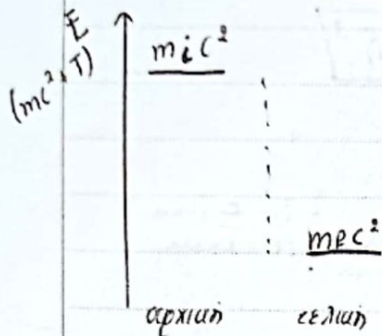 E
(mc², T)
mic²
mpc²
αρχική τελική